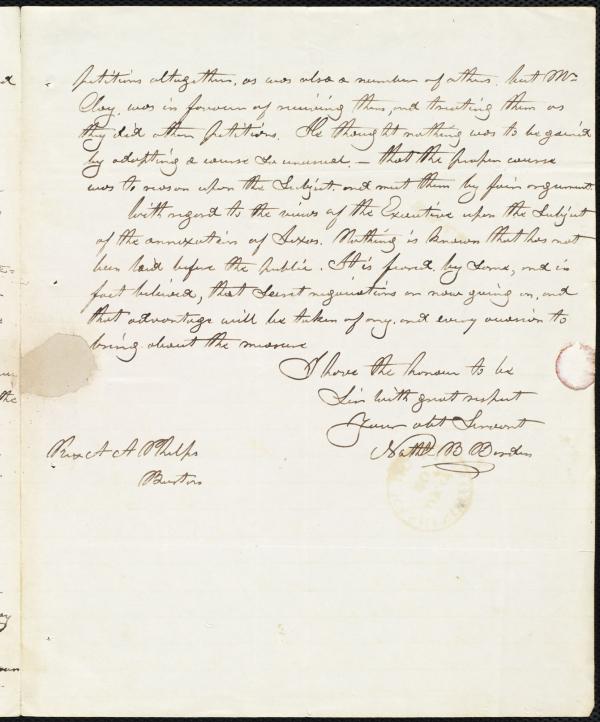 petitions altogether, as was also a number of others. but Mr
Clay, was in favour of receiving them, and treating them as
they did other petitions. He thought nothing was to be gained
by adopting a course so unusual. – that the proper course
was to reason upon the subject, and meet them by fair argument
With regard to the views of the Executive upon the subject
of the annexation of Texas. Nothing is known that has not
been laid before the public. It is feared by some, and in
fact believed, that secret negociations are now going on, and
that advantage will be taken of any, and every occasion to
bring about the measure
I have the honour to be
Sir with great respect
Your obt Servant
Nathl B Borden
Rev A A Phelps
Boston